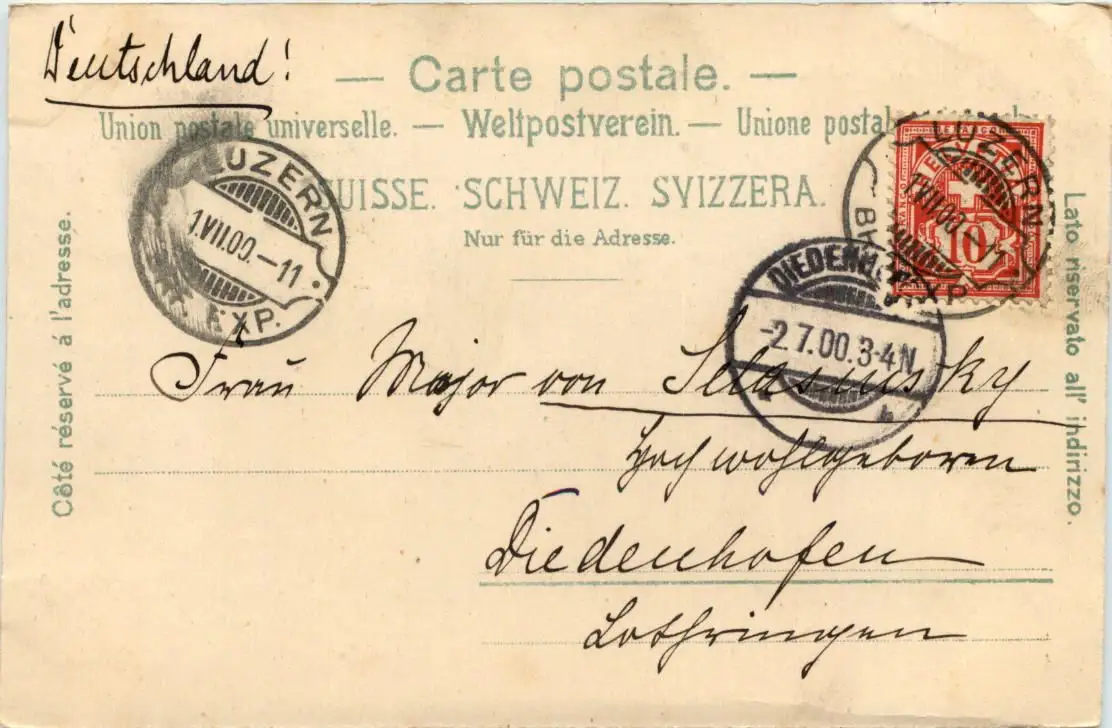 Deutschland!
— Carte postale. —
Union postale universelle. — Weltpostverein. — Unione postal
SUISSE. SCHWEIZ. SVIZZERA.
Nur für die Adresse.
Côté réservé à l'adresse.
Lato riservato all' indirizzo.
LUZERN
1.VII.00.–11
EXP.
FRANCO
10
LUZERN
1.VII.00.–11
DIEDENH
-2.7.00.3-4N.
Frau Major von
Hochwohlgeboren
Diedenhofen
Lothringen